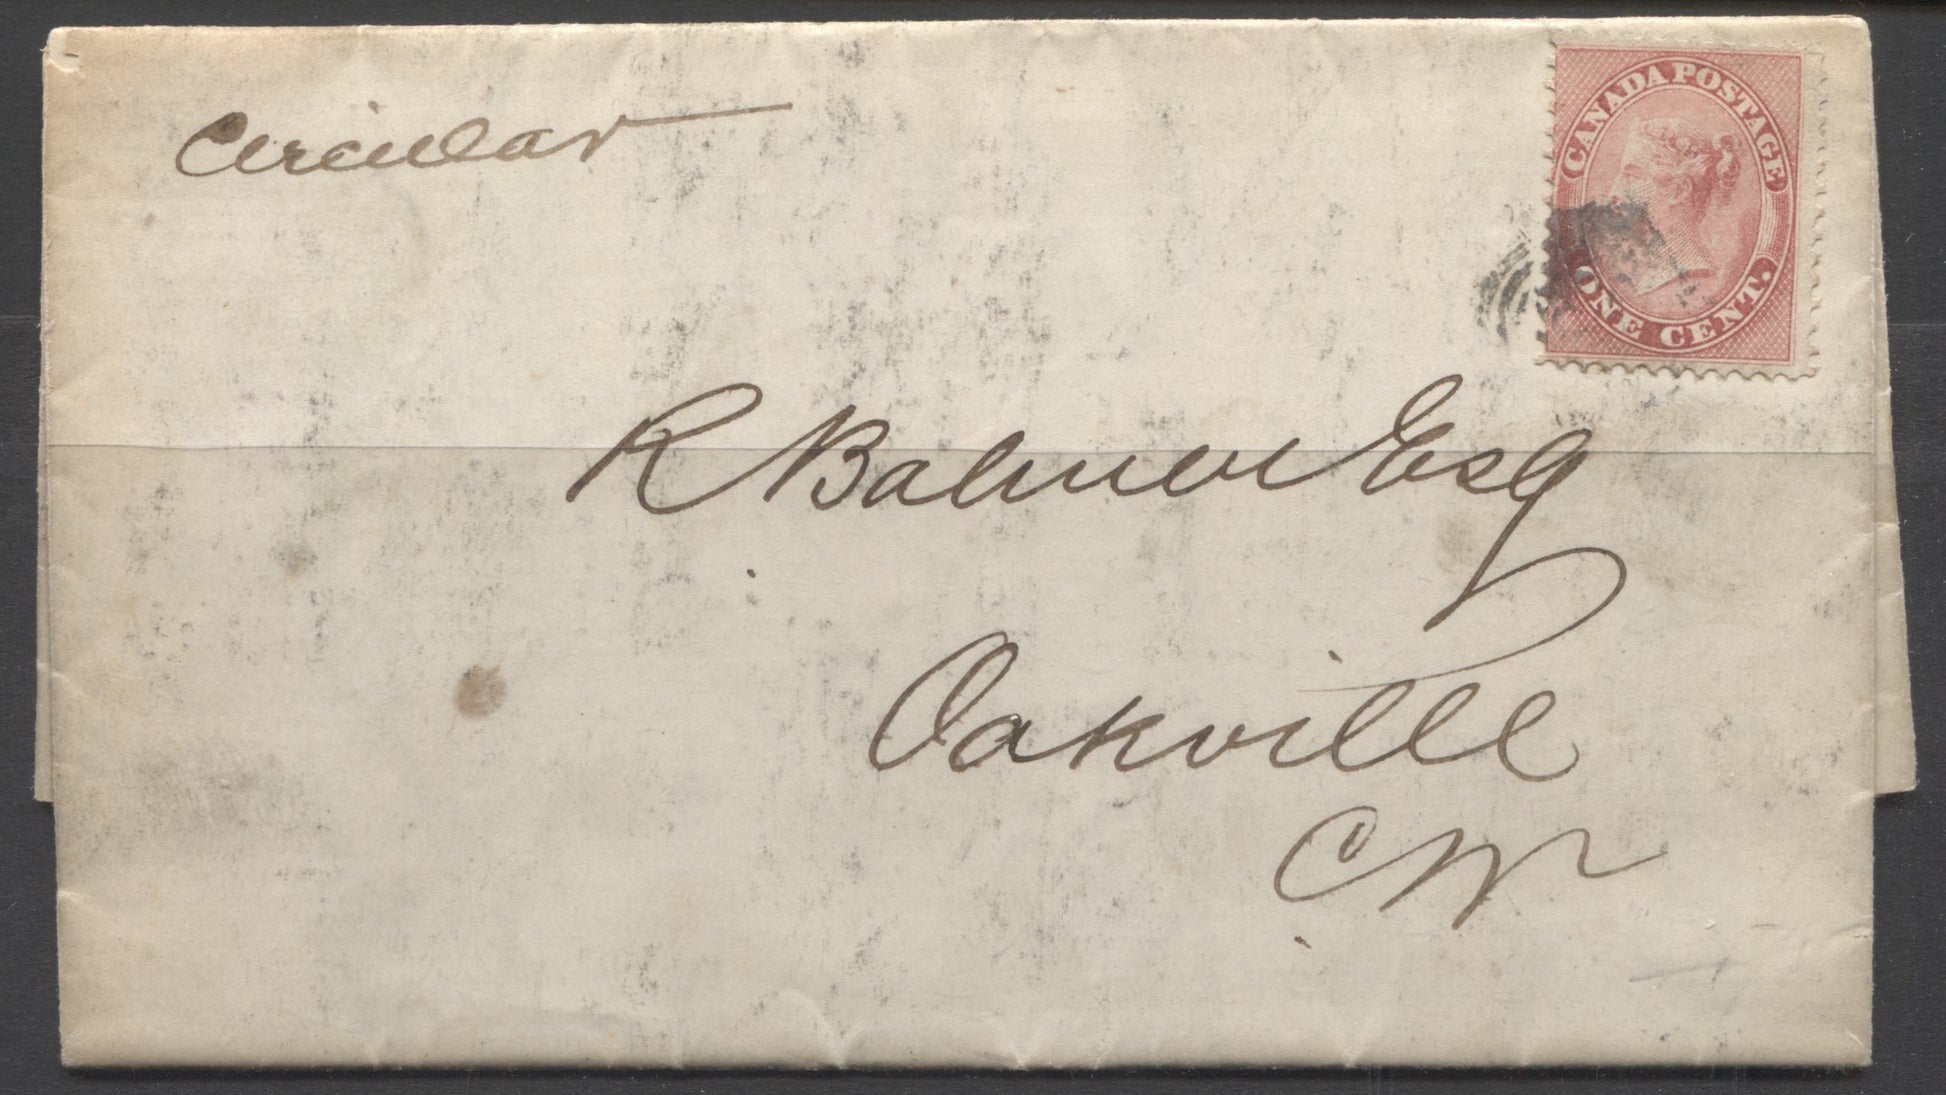 Circular
CANADA POSTAGE
ONE CENT.
R Balmer Esq
Oakville
CW